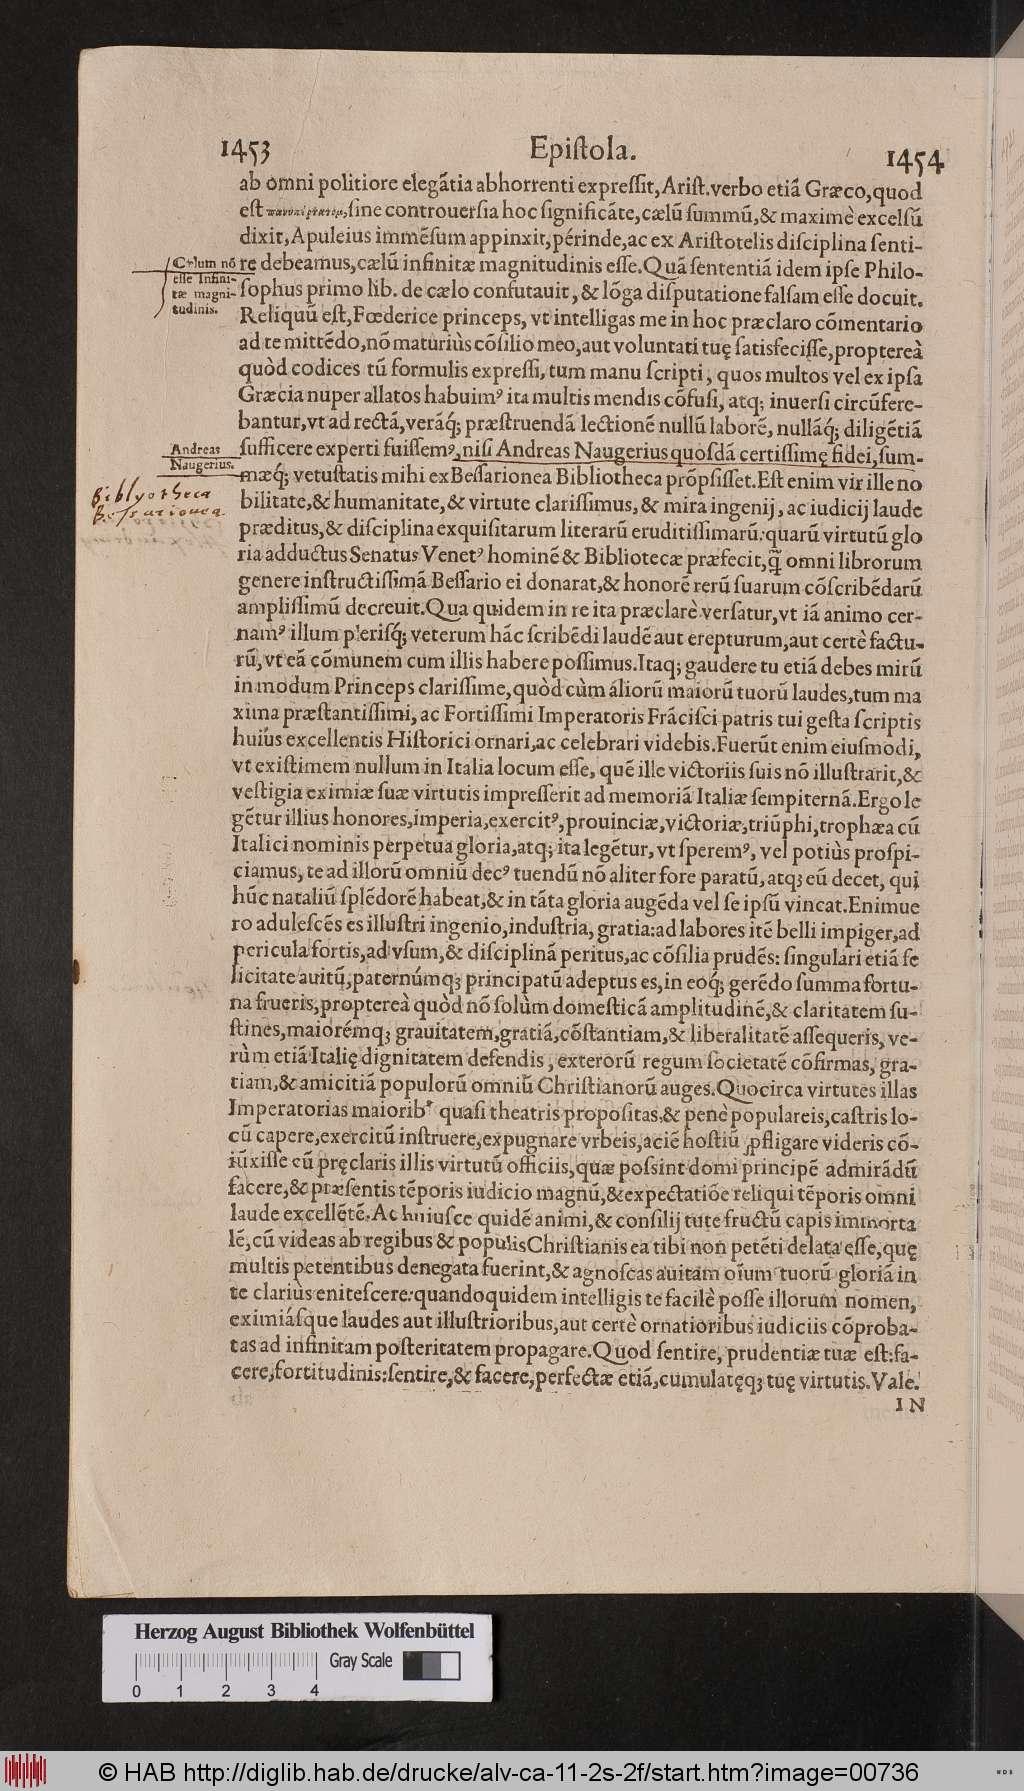 1453 Epiſtola. 1454
ab omni politiore elegãtia abhorrenti expreſſit, Ariſt. verbo etiã Græco, quod
eſt ſine controuerſia hoc ſignificãte, cælũ ſummũ, & maximè excelſũ
dixit, Apuleius immẽſum appinxit, périnde, ac ex Ariſtotelis diſciplina ſenti-
re debeamus, cælũ infinitæ magnitudinis eſſe. Quã ſententiã idem ipſe Philo-
ſophus primo lib. de cælo confutauit, & lõga diſputatione falſam eſſe docuit.
Cælum nõ
eſſe Infini-
tæ magni-
tudinis.
Reliquũ eſt, Fœderice princeps, vt intelligas me in hoc præclaro cõmentario
ad te mittẽdo, nõ maturiùs cõſilio meo, aut voluntati tuę ſatisfeciſſe, propterea̓
quòd codices tũ formulis expreſſi, tum manu ſcripti, quos multos vel ex ipſa
Græcia nuper allatos habuimꝰ ita multis mendis cõfuſi, atq; inuerſi circũfere-
bantur, vt ad rectã, verãq́; præſtruendã lectionẽ nullũ laborẽ, nullãq́; diligẽtiã
ſufficere experti fuiſſemꝰ, niſi Andreas Naugerius quoſdã certiſſimę fidei, ſum-
mæq́; vetuſtatis mihi ex Beſſarionea Bibliotheca prõpſiſſet. Eſt enim vir ille no
Andreas
Naugerius.
Biblyotheca
Beſſarionea
bilitate, & humanitate, & virtute clariſſimus, & mira ingenij, ac iudicij laude
præditus, & diſciplina exquiſitarum literarũ eruditiſſimarũ: quarũ virtutũ glo
ria adductus Senatus Venetꝰ hominẽ & Bibliotecæ præfecit, q̃ omni librorum
genere inſtructiſſimã Beſſario ei donarat, & honorẽ rerũ ſuarum cõſcribẽdarũ
ampliſſimũ decreuit. Qua quidem in re ita præclarè verſatur, vt iã animo cer-
namꝰ illum pleriſq́; veterum hãc ſcribẽdi laudẽ aut erepturum, aut certè factu-
rũ, vt eã cõmunem cum illis habere poſſimus. Itaq; gaudere tu etiã debes mirũ
in modum Princeps clariſſime, quòd cùm áliorũ maiorũ tuorũ laudes, tum ma
xima præſtantiſſimi, ac Fortiſſimi Imperatoris Frãciſci patris tui geſta ſcriptis
huius excellentis Hiſtorici ornari, ac celebrari videbis. Fuerũt enim eiuſmodi,
vt exiſtimem nullum in Italia locum eſſe, quẽ ille victoriis ſuis nõ illuſtrarit, &
veſtigia eximiæ ſuæ virtutis impreſſerit ad memoriã Italiæ ſempiternã. Ergo le
gẽtur illius honores, imperia, exercitꝰ, prouinciæ, victoriæ, triũphi, trophæa cũ
Italici nominis perpetua gloria, atq; ita legẽtur, vt ſperemꝰ, vel potiùs proſpi-
ciamus, te ad illorũ omniũ decꝰ tuendũ nõ aliter fore paratũ, atq; eũ decet, qui
hũc nataliũ ſplẽdorẽ habeat, & in tãta gloria augẽda vel ſe ipſũ vincat. Enimue
ro aduleſcẽs es illuſtri ingenio, induſtria, gratia: ad labores itẽ belli impiger, ad
pericula fortis, ad vſum, & diſciplinã peritus, ac cõſilia prudẽs: ſingulari etiã fe
licitate auitũ, paternúmq; principatũ adeptus es, in eoq́; gerẽdo ſumma fortu-
na frueris, propterea̓ quòd nõ ſolùm domeſticã amplitudinẽ, & claritatem ſu-
ſtines, maiorémq; grauitatem, gratiã, cõſtantiam, & liberalitatẽ aſſequeris, ve-
rùm etiã Italię dignitatem defendis, exterorũ regum ſocietatẽ cõfirmas, gra-
tiam, & amicitiã populorũ omniũ Chriſtianorũ auges. Quocirca virtutes illas
Imperatorias maioribꝰ quaſi theatris propoſitas, & penè populareis, caſtris lo-
cũ capere, exercitũ inſtruere, expugnare vrbeis, aciẽ hoſtiũ ꝓfligare videris cõ-
iũxiſſe cũ pręclaris illis virtutũ officiis, quæ poſſint domi principẽ admirãdũ
facere, & præſentis tẽporis iudicio magnũ, & expectatiõe reliqui tẽporis omni
laude excellẽtẽ. Ac huiuſce quidẽ animi, & conſilij tute fructũ capis immorta
lẽ, cũ videas ab regibus & populis Chriſtianis ea tibi non petẽti delata eſſe, quę
multis petentibus denegata fuerint, & agnoſcas auitam oĩum tuorũ gloriã in
te clariùs eniteſcere: quandoquidem intelligis te facilè poſſe illorum nomen,
eximiáſque laudes aut illuſtrioribus, aut certè ornatioribus iudiciis cõproba-
tas ad infinitam poſteritatem propagare. Quod ſentire, prudentiæ tuæ eſt: fa-
cere, fortitudinis: ſentire, & facere, perfectæ etiã, cumulatęq; tuę virtutis. Vale.
IN
Herzog August Bibliothek Wolfenbüttel
Gray Scale
0 1 2 3 4
© HAB http://diglib.hab.de/drucke/alv-ca-11-2s-2f/start.htm?image=00736